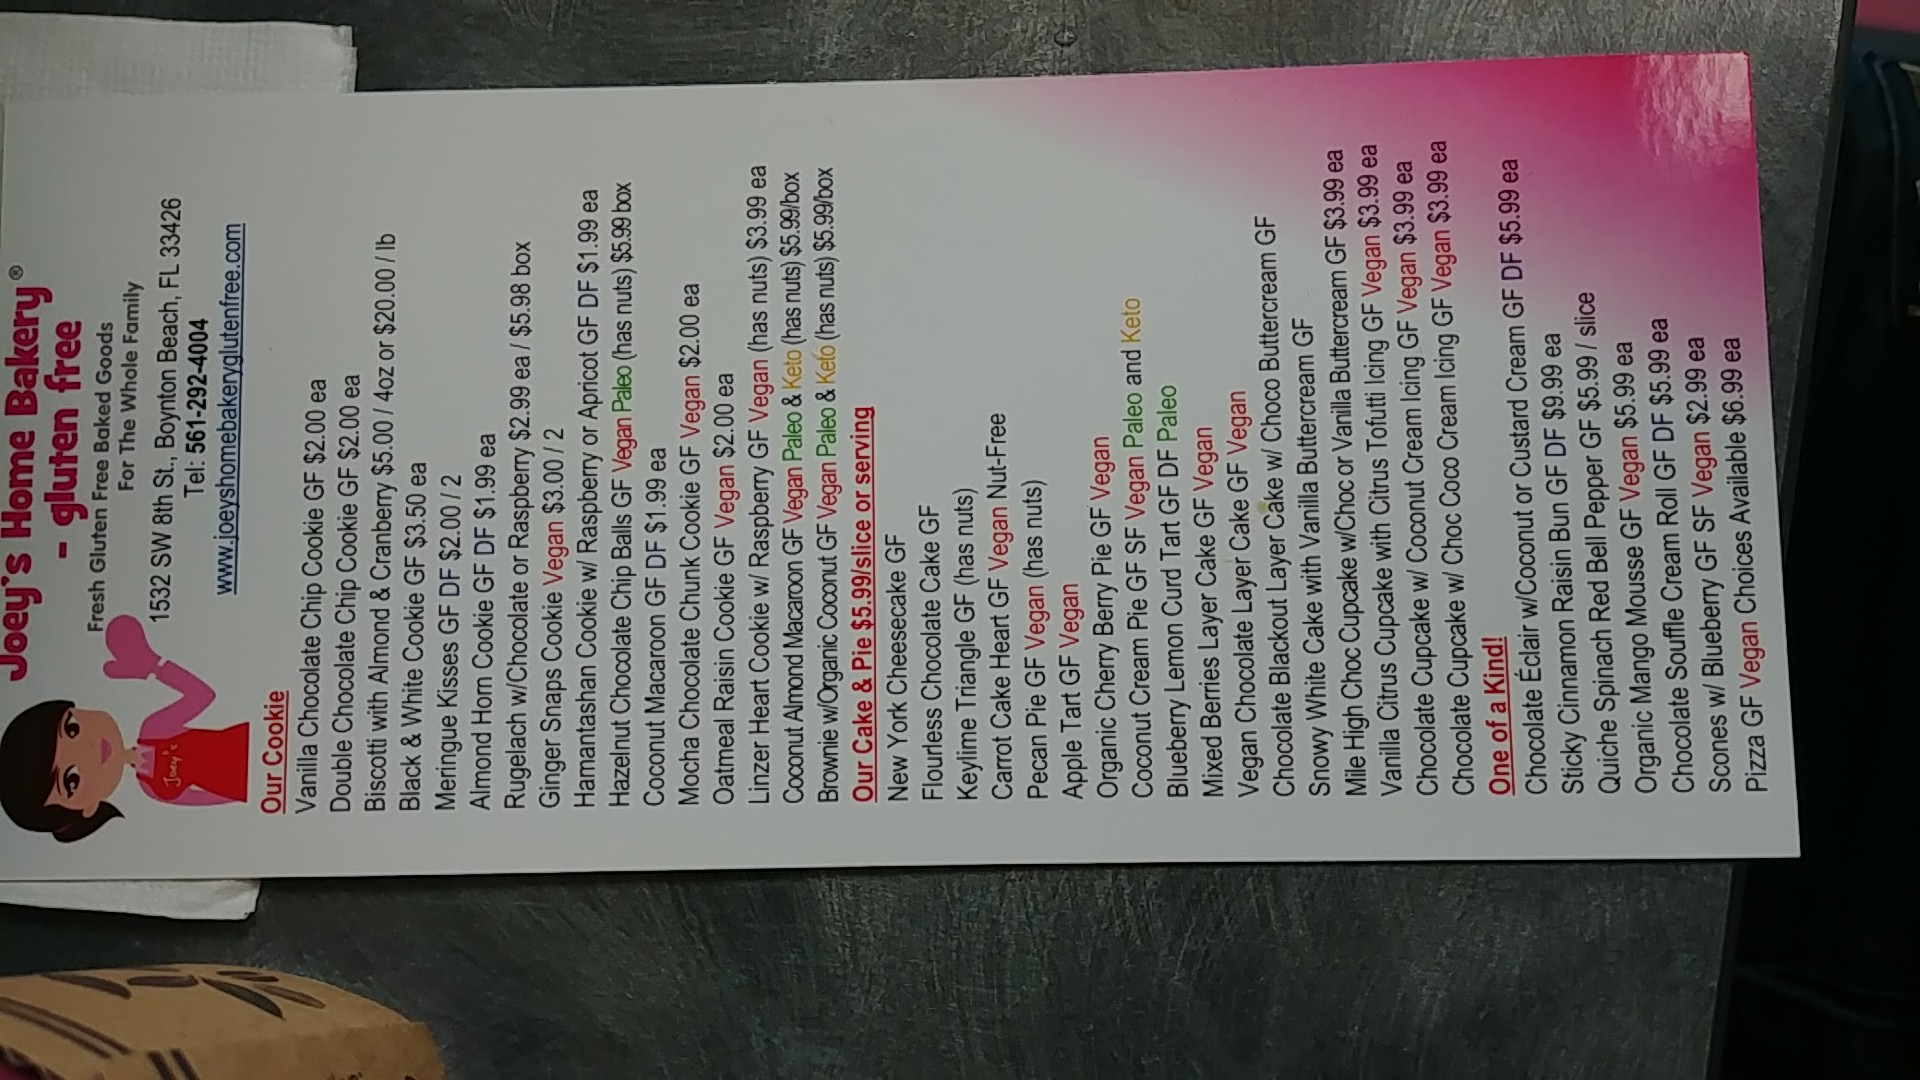 Joey's Home Bakery®
- gluten free
Fresh Gluten Free Baked Goods
For The Whole Family
1532 SW 8th St., Boynton Beach, FL 33426
Tel: 561-292-4004
www.joeyshomebakeryglutenfree.com
Joey's
Our Cookie
Vanilla Chocolate Chip Cookie GF $2.00 ea
Double Chocolate Chip Cookie GF $2.00 ea
Biscotti with Almond & Cranberry $5.00 / 4oz or $20.00 / lb
Black & White Cookie GF $3.50 ea
Meringue Kisses GF DF $2.00 / 2
Almond Horn Cookie GF DF $1.99 ea
Rugelach w/Chocolate or Raspberry $2.99 ea / $5.98 box
Ginger Snaps Cookie Vegan $3.00 / 2
Hamantashan Cookie w/ Raspberry or Apricot GF DF $1.99 ea
Hazelnut Chocolate Chip Balls GF Vegan Paleo (has nuts) $5.99 box
Coconut Macaroon GF DF $1.99 ea
Mocha Chocolate Chunk Cookie GF Vegan $2.00 ea
Oatmeal Raisin Cookie GF Vegan $2.00 ea
Linzer Heart Cookie w/ Raspberry GF Vegan (has nuts) $3.99 ea
Coconut Almond Macaroon GF Vegan Paleo & Keto (has nuts) $5.99/box
Brownie w/Organic Coconut GF Vegan Paleo & Keto (has nuts) $5.99/box
Our Cake & Pie $5.99/slice or serving
New York Cheesecake GF
Flourless Chocolate Cake GF
Keylime Triangle GF (has nuts)
Carrot Cake Heart GF Vegan Nut-Free
Pecan Pie GF Vegan (has nuts)
Apple Tart GF Vegan
Organic Cherry Berry Pie GF Vegan
Coconut Cream Pie GF SF Vegan Paleo and Keto
Blueberry Lemon Curd Tart GF DF Paleo
Mixed Berries Layer Cake GF Vegan
Vegan Chocolate Layer Cake GF Vegan
Chocolate Blackout Layer Cake w/ Choco Buttercream GF
Snowy White Cake with Vanilla Buttercream GF
Mile High Choc Cupcake w/Choc or Vanilla Buttercream GF $3.99 ea
Vanilla Citrus Cupcake with Citrus Tofutti Icing GF Vegan $3.99 ea
Chocolate Cupcake w/ Coconut Cream Icing GF Vegan $3.99 ea
Chocolate Cupcake w/ Choc Coco Cream Icing GF Vegan $3.99 ea
One of a Kind!
Chocolate Éclair w/Coconut or Custard Cream GF DF $5.99 ea
Sticky Cinnamon Raisin Bun GF DF $9.99 ea
Quiche Spinach Red Bell Pepper GF $5.99 / slice
Organic Mango Mousse GF Vegan $5.99 ea
Chocolate Souffle Cream Roll GF DF $5.99 ea
Scones w/ Blueberry GF SF Vegan $2.99 ea
Pizza GF Vegan Choices Available $6.99 ea